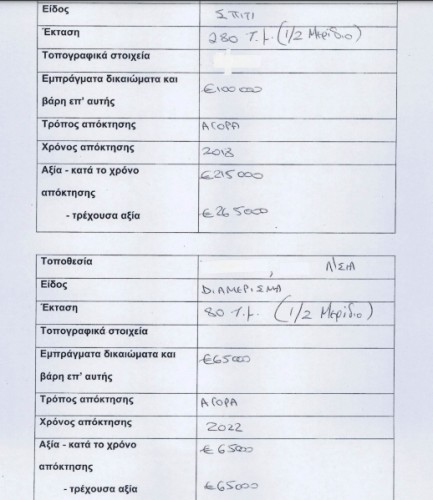 Είδος ΣΠΙΤΙ
Έκταση 280 Τ.μ. (1/2 Μερίδιο)
Τοπογραφικά στοιχεία
Εμπράγματα δικαιώματα και
βάρη επ' αυτής €100000
Τρόπος απόκτησης ΑΓΟΡΑ
Χρόνος απόκτησης 2018
Αξία - κατά το χρόνο €215000
απόκτησης
- τρέχουσα αξία €265000
Τοποθεσία ,
Είδος ΔΙΑΜΕΡΙΣΜΑ
Έκταση 80 Τ.μ. (1/2 Μερίδιο)
Τοπογραφικά στοιχεία
Εμπράγματα δικαιώματα και €65000
βάρη επ' αυτής
Τρόπος απόκτησης ΑΓΟΡΑ
Χρόνος απόκτησης 2022
Αξία - κατά το χρόνο €65000
απόκτησης
- τρέχουσα αξία €65000